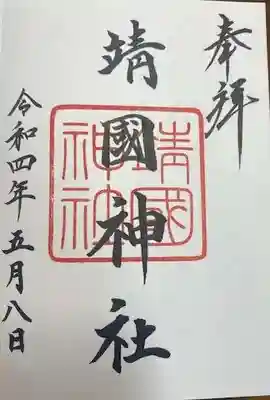 奉拜
靖國神社
靖國
神社
令和四年五月八日